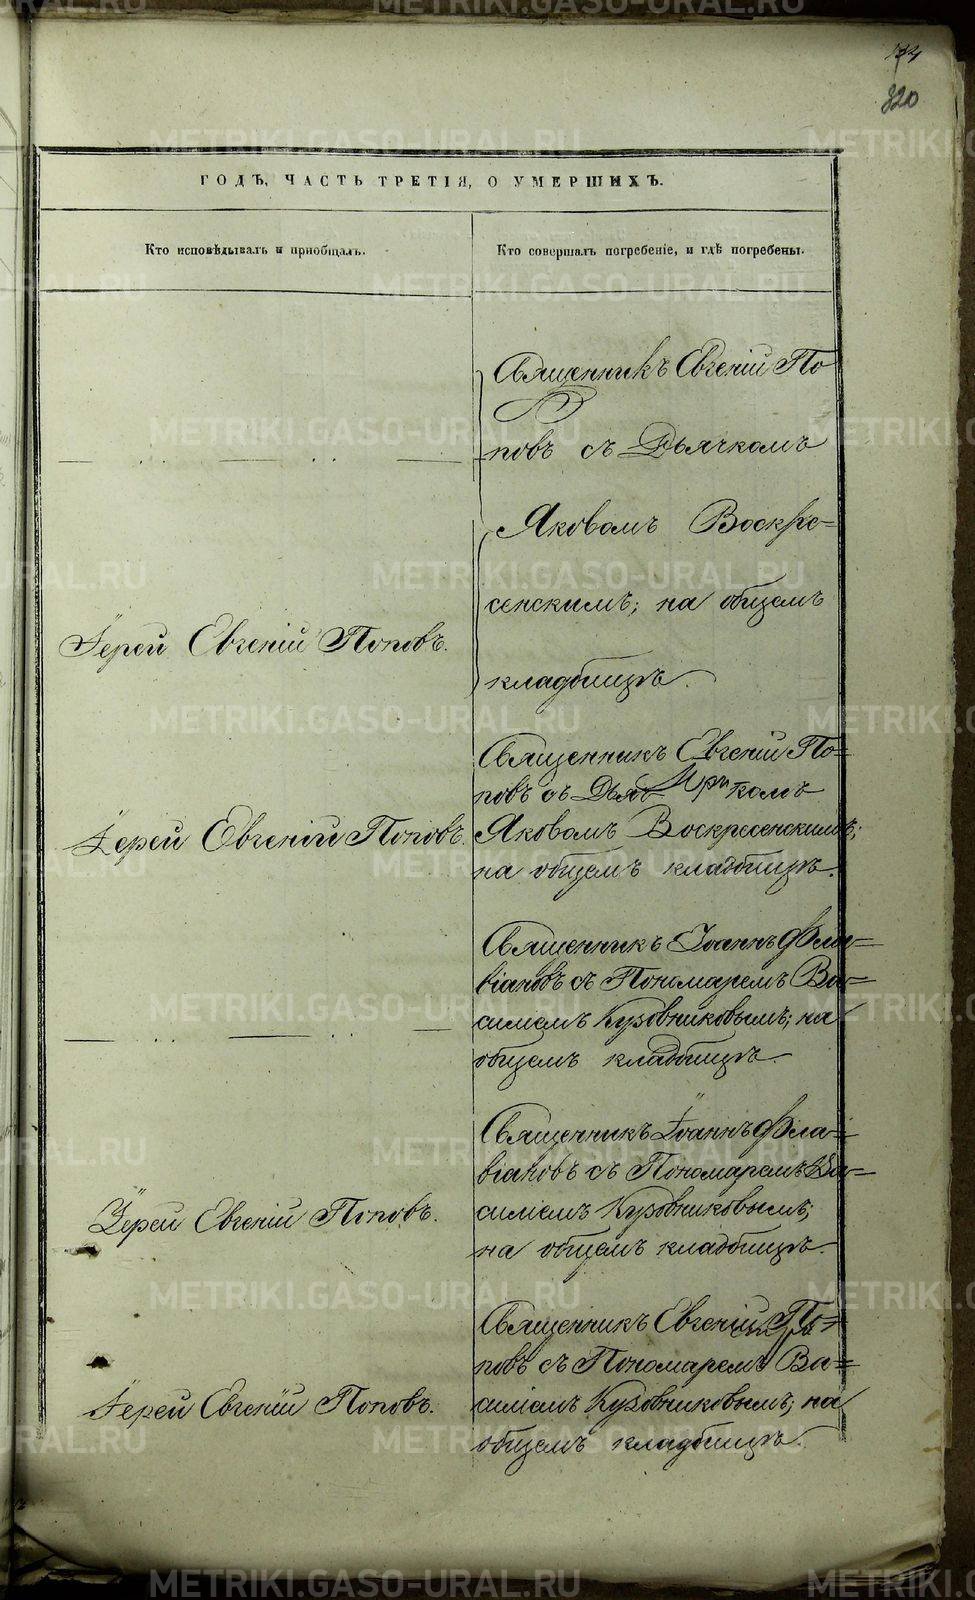 820
ГОДЪ, ЧАСТЬ ТРЕТІЯ, О УМЕРШИХЪ.
Кто исповѣдывалъ и приобщалъ.
Кто совершалъ погребеніе, и гдѣ погребены.
Священникъ Евгеній По
повъ съ Дьячкомъ
Яковомъ Воскре=
сенскимъ; на общемъ
кладбищѣ.
Іерей Евгеній Поповъ.
Священникъ Евгеній По=
повъ съ Дьяч комъ
Яковомъ Воскресенскимъ;
на общемъ кладбищѣ.
Іерей Евгеній Поповъ.
Священникъ Іоаннъ Фла=
віановъ съ Пономаремъ Ва=
силіемъ Кузовниковымъ; на
общемъ кладбищѣ.
Священникъ Іоаннъ Фла=
віановъ съ Пономаремъ Ва=
силіемъ Кузовниковымъ;
на общемъ кладбищѣ.
Іерей Евгеній Поповъ.
Священникъ Евгеній По=
повъ съ Пономаремъ Ва=
силіемъ Кузовниковымъ; на
общемъ кладбищѣ.
Іерей Евгеній Поповъ.
METRIKI.GASO-URAL.RU